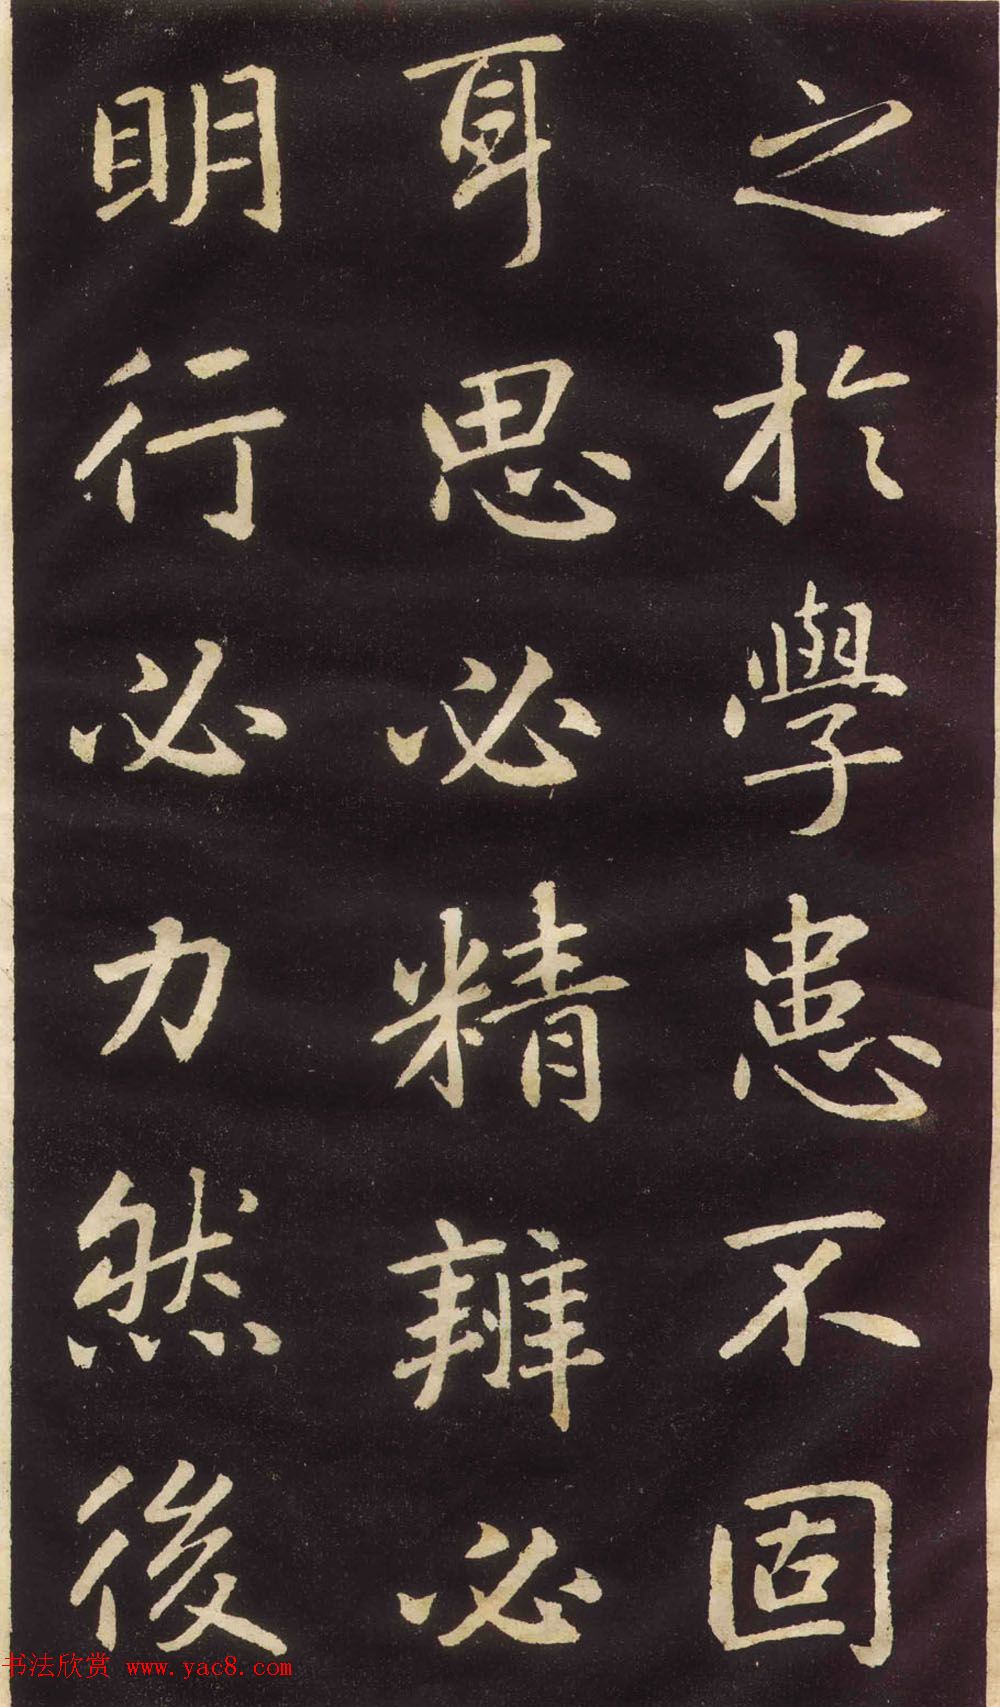 之於學患不固
耳思必精辨必
明行必力然後
书法欣赏 www.yac8.com